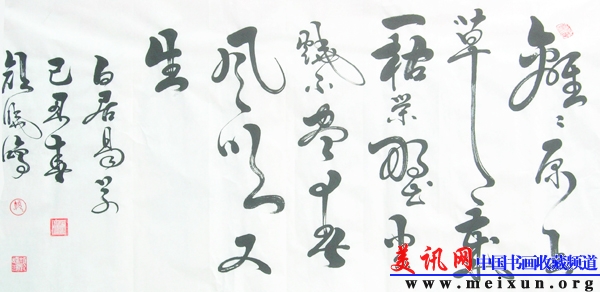 離〻原上
草一歲
一枯榮野火
燒不盡春
風吹又
生
白居易
己丑春
美讯网 中国书画收藏频道
www.meixun.org